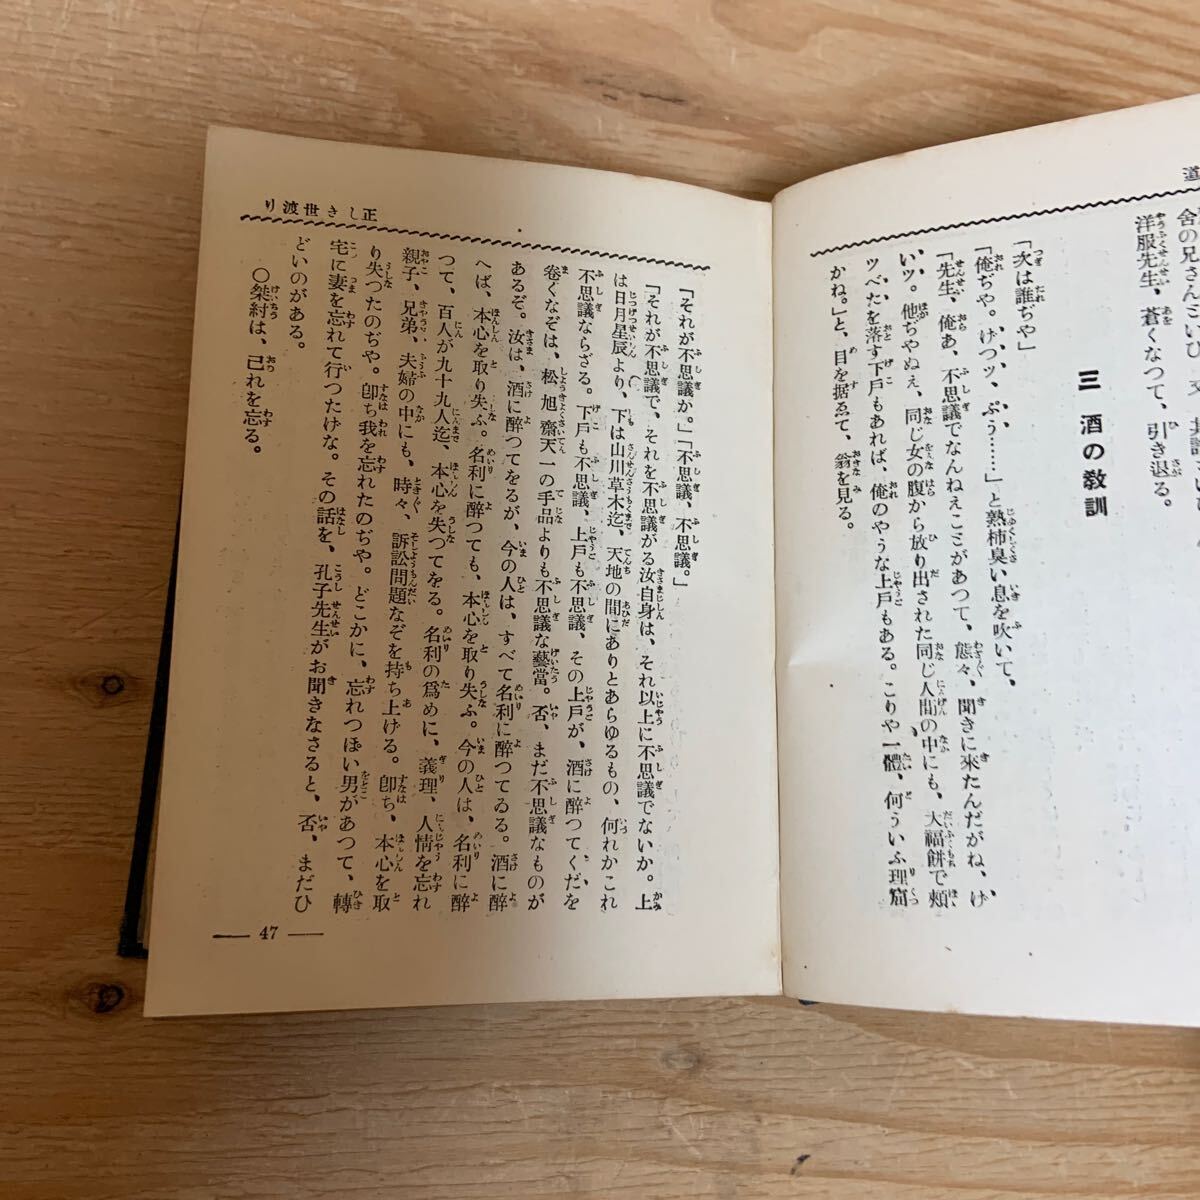 道
舍の兄さん
洋服先生、蒼くなつて、引き退る。
三 酒の教訓
「次は誰ぢや」
「俺ぢや。けつッ、ぷう……」と熟柿臭い息を吹いて、
「先生、俺あ、不思議でなんねえこミがあつて、態々、聞きに來たんだがね、げ
いッ。他ぢやねえ、同じ女の腹から放り出された同じ人間の中にも、大福餅で頬
ッべたを落す下戸もあれば、俺のやうな上戸もある。こりや一體、何ういふ理窟
かね。」と、目を据ゑて、翁を見る。
正しき世渡り
「それが不思議か。」「不思議、不思議。」
「それが不思議で、それを不思議がる汝自身は、それ以上に不思議でないか。上
は日月星辰より、下は山川草木迄、天地の間にありとあらゆるもの、何れかこれ
不思議ならざる。下戸も不思議、上戸も不思議、その上戸が、酒に醉つてくだを
卷くなぞは、松旭齋天一の手品よりも不思議な藝當。否、まだ不思議なものが
あるぞ。汝は、酒に醉つてをるが、今の人は、すべて名利に醉つてゐる。酒に醉
へば、本心を取り失ふ。名利に醉つても、本心を取り失ふ。今の人は、名利に醉
つて、百人が九十九人迄、本心を失つてをる。名利の爲めに、義理、人情を忘れ
親子、兄弟、夫婦の中にも、時々、訴訟問題なぞを持ち上げる。卽ち、本心を取
り失つたのぢや。卽ち我を忘れたのぢや。どこかに、忘れつぽい男があつて、轉
宅に妻を忘れて行つたげな。その話を、孔子先生がお聞きなさると、否、まだひ
どいのがある。
〇桀紂は、己れを忘る。
— 47 —